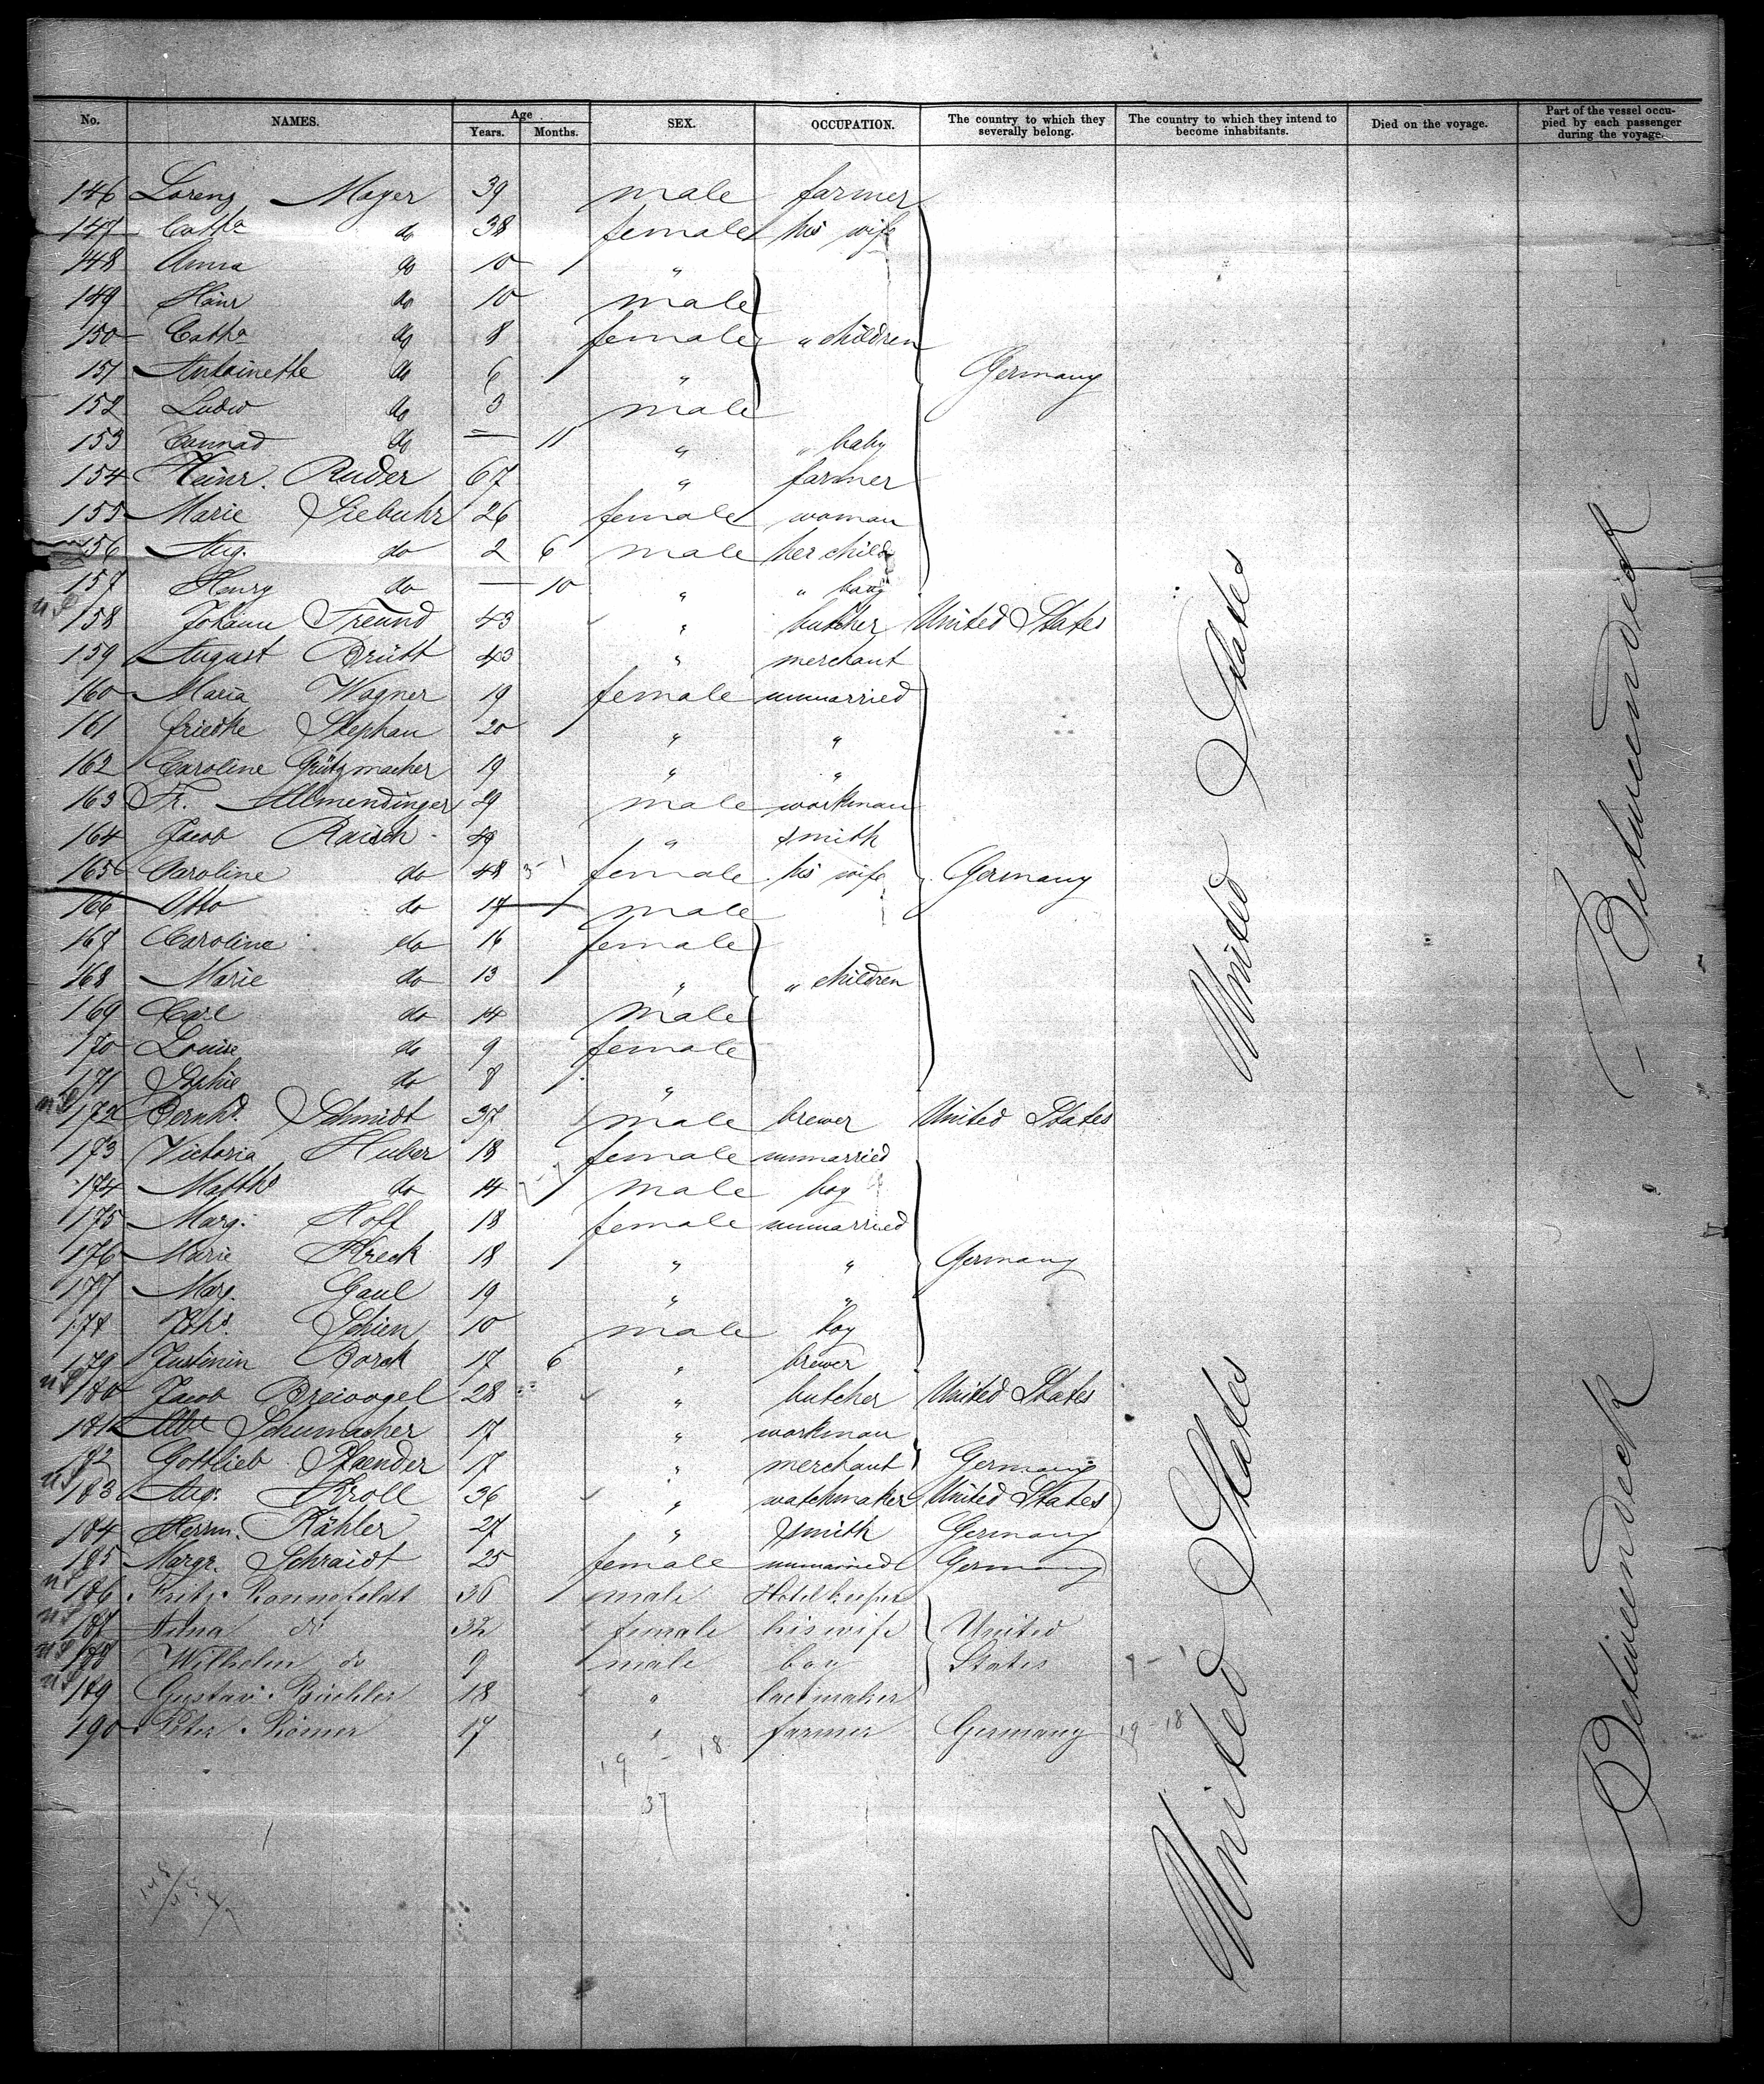 No. NAMES. Age Years. Months. SEX. OCCUPATION. The country to which they severally belong. The country to which they intend to become inhabitants. Died on the voyage. Part of the vessel occupied by each passenger during the voyage.
146 Lorenz Mayer 39 male farmer
147 Cath⁠a do 38 female his wife
148 Anna do 10 "
149 Heinr do 10 male
150 Catha do 8 female " children
151 Antoinette do 6 " Germany
152 Ludw do 3 male
153 Conrad do — 11 " " baby
154 Heinr. Ruder 67 " farmer
155 Marie Siebuhr 26 female woman
156 Aug. do 2 6 male her child
157 Henry do — 10 " "
US 158 Johann Freund 43 " butcher United States
159 August Brütt 43 " merchant
160 Maria Wagner 19 female unmarried
161 Friedke Stephan 20 " "
162 Caroline Grützmacher 19 " "
163 Fr. Allmendinger 29 male workman
164 Jacob Raisch 49 " smith
165 Caroline do 48 female his wife Germany
166 Otto do 17 male
167 Caroline do 16 female
168 Marie do 13 " " children
169 Carl do 14 male
170 Louise do 9 female
171 Sophie do 8 "
US 172 Bernhd. Schmidt 37 male brewer United States
173 Victoria Huber 18 female unmarried
174 Matths do 14 male boy
175 Marg. Hoff 18 female unmarried
176 Marie Kreck 18 " " Germany
177 Marg. Gaul 19 " "
178 Johs. Schien 10 male boy
179 Justinin Borck 17 6 " brewer
US 180 Jacob Breivogel 28 " butcher United States
181 Albt Schumacher 17 " workman
182 Gottlieb Pfaender 17 " merchant Germany
US 183 Aug. Kroll 36 " watchmaker United States
184 Herm. Kähler 27 " smith Germany
185 Margr. Schraidt 25 female unmarried Germany
US 186 Fritz Ronnefeldt 36 male Hotelkeeper
US 187 do 32 female his wife United
US 188 Wilhelm do 9 male boy States
US 189 Gustav Büchler 18 "
190 Peter Römer 17 " farmer Germany 19-18
19 - 18
37
United States
United States
Betweendeck
Betweendeck